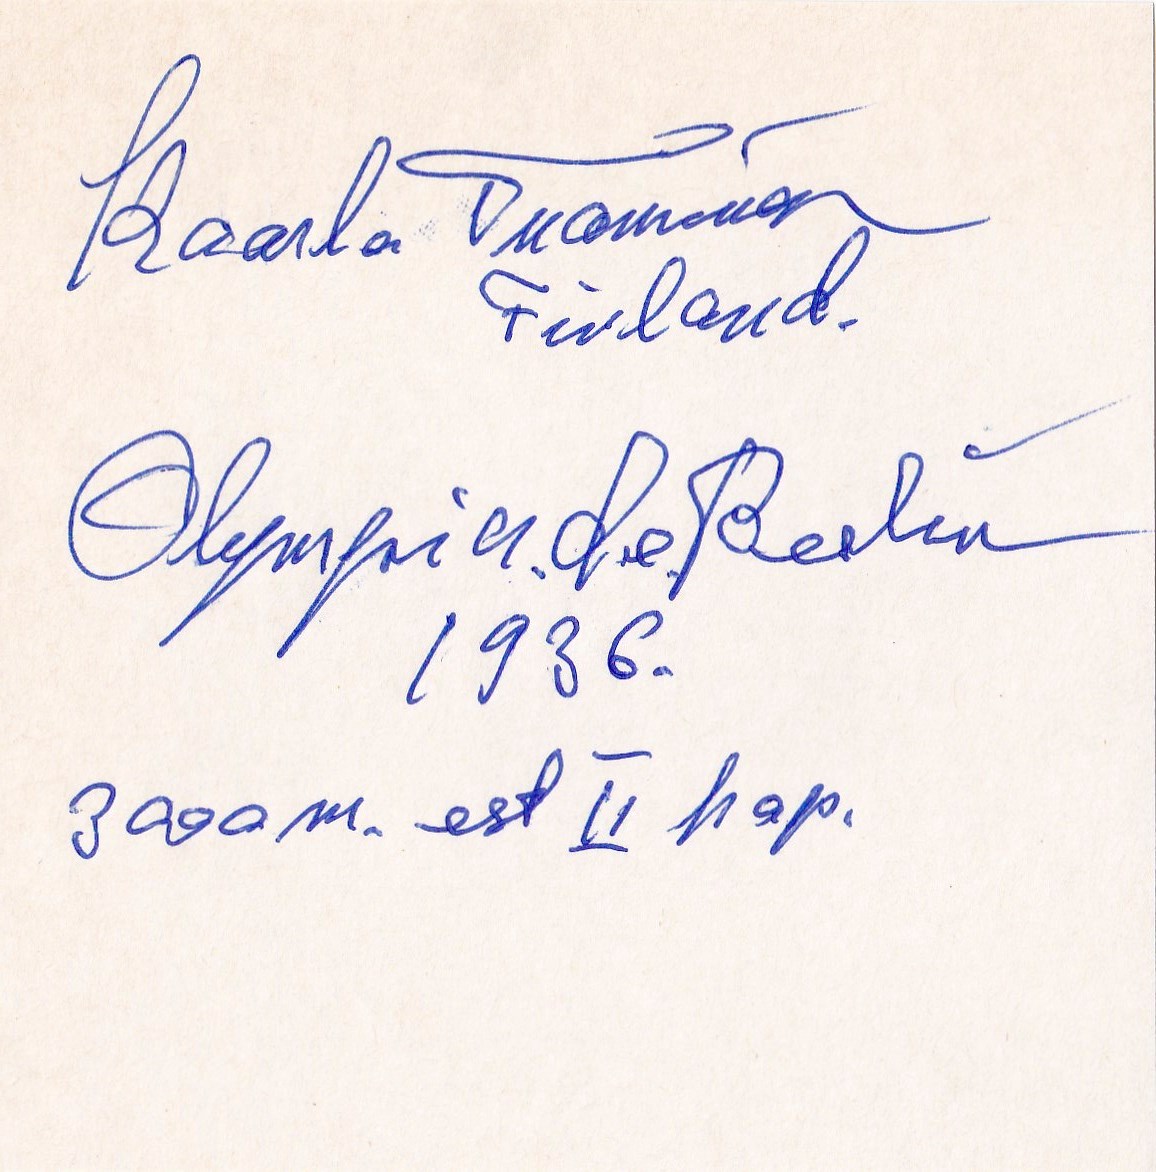 Kaarlo Tuominen
Finland.
Olympia. de. Berlin
1936.
3000 m. est II hop.